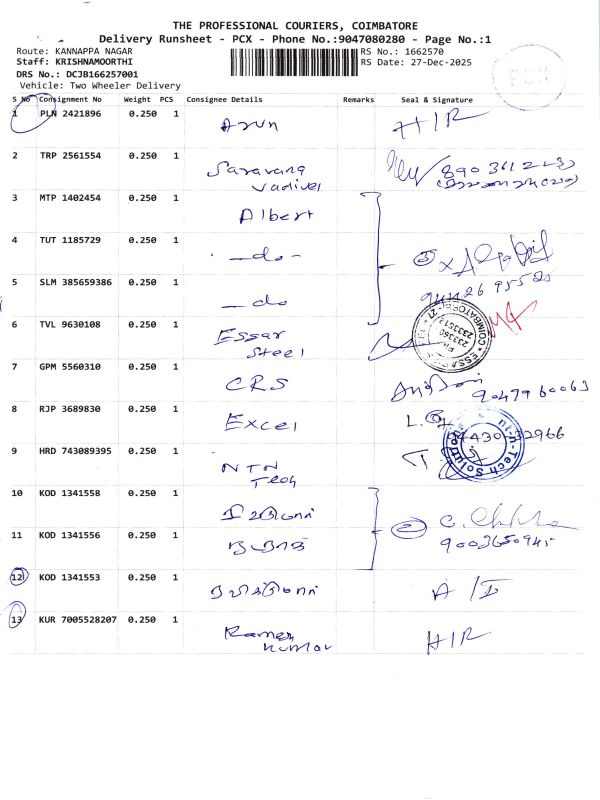 THE PROFESSIONAL COURIERS, COIMBATORE
Delivery Runsheet - PCX - Phone No.:9047080280 - Page No.:1
Route: KANNAPPA NAGAR
RS No.: 1662570
Staff: KRISHNAMOORTHI
RS Date: 27-Dec-2025
DRS No.: DCJB166257001
Vehicle: Two Wheeler Delivery
PCX
S No Consignment No Weight PCS Consignee Details Remarks Seal & Signature
1 PLN 2421896 0.250 1 Arun H/R
2 TRP 2561554 0.250 1 Saravana
Vadivel
3 MTP 1402454 0.250 1 Albert
4 TUT 1185729 0.250 1 -do-
5 SLM 385659386 0.250 1 -do
6 TVL 9630108 0.250 1 Essar
Steel
7 GPM 5560310 0.250 1 CRS 9047960063
8 RJP 3689830 0.250 1 Excel
9 HRD 743089395 0.250 1 NTN
Tech
10 KOD 1341558 0.250 1
11 KOD 1341556 0.250 1 9003650945
12 KOD 1341553 0.250 1 A/I
13 KUR 7005528207 0.250 1 Ramesh
Kumar H/R